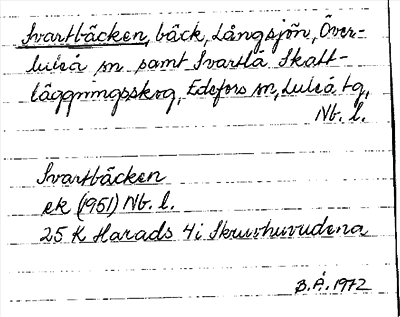 Svartbäcken, bäck, Långsjön, Över-
luleå sn samt Svartlå Skatt-
läggningsskog, Edefors sn, Luleå tg,
Nb. l.
Svartbäcken
ek (1951) Nb. l.
25 K Harads 4i Skruvhuvudena
B.Å. 1972